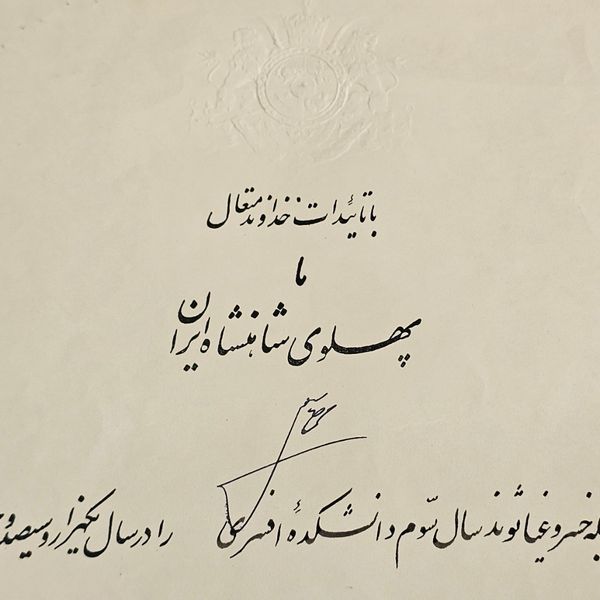 با تائیدات خداوند متعال
ما
پهلوی شاهنشاه ایران
خسرو غیاثوند سال سوم دانشکدهٔ افسری را در سال یکهزار و سیصد و